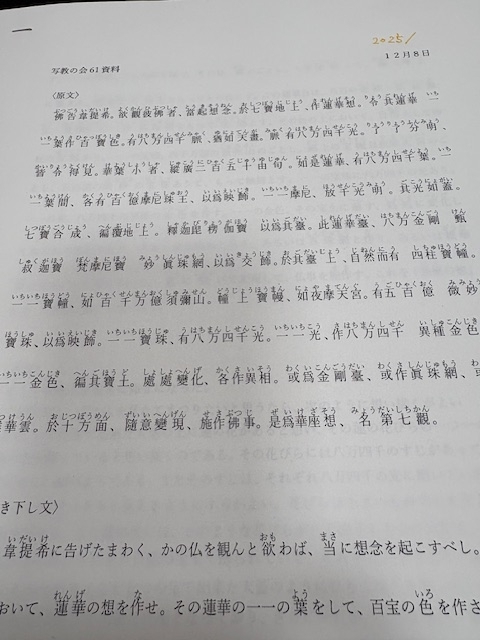 一
2025/
12月8日
写教の会61資料
〈原文〉
佛告韋提希。欲觀彼佛者、當起想念。於七寶地上、作蓮華想。令其蓮華 一
一葉作百寶色。有八万四千脈、猶如天畫。脈有八万四千光。了了分明、
皆令得見。華葉小者、縱廣二百五十由旬。如是蓮華、有八万四千葉。一
一葉間、各有百億摩尼珠王、以爲映飾。一一摩尼、放千光明。其光如蓋、
七寶合成、徧覆地上。釋迦毘楞伽寶 以爲其臺。此蓮華臺、八万金剛 甄
叔迦寶 梵摩尼寶 妙眞珠網、以爲交飾。於其臺上、自然而有 四柱寶幢。
一一寶幢、如百千万億須彌山。幢上寶幔、如夜摩天宮。有五百億 微妙
寶珠、以爲映飾。一一寶珠、有八万四千光。一一光、作八万四千 異種金色
一一金色、徧其寶土。處處變化、各作異相。或爲金剛臺、或作眞珠網、或
華雲。於十方面、隨意變現、施作佛事。是爲華座想、名第七觀。
き下し文〉
韋提希に告げたまわく、かの仏を観んと欲わば、当に想念を起こすべし。
おいて、蓮華の想を作せ。その蓮華の一一の葉をして、百宝の色を作さ